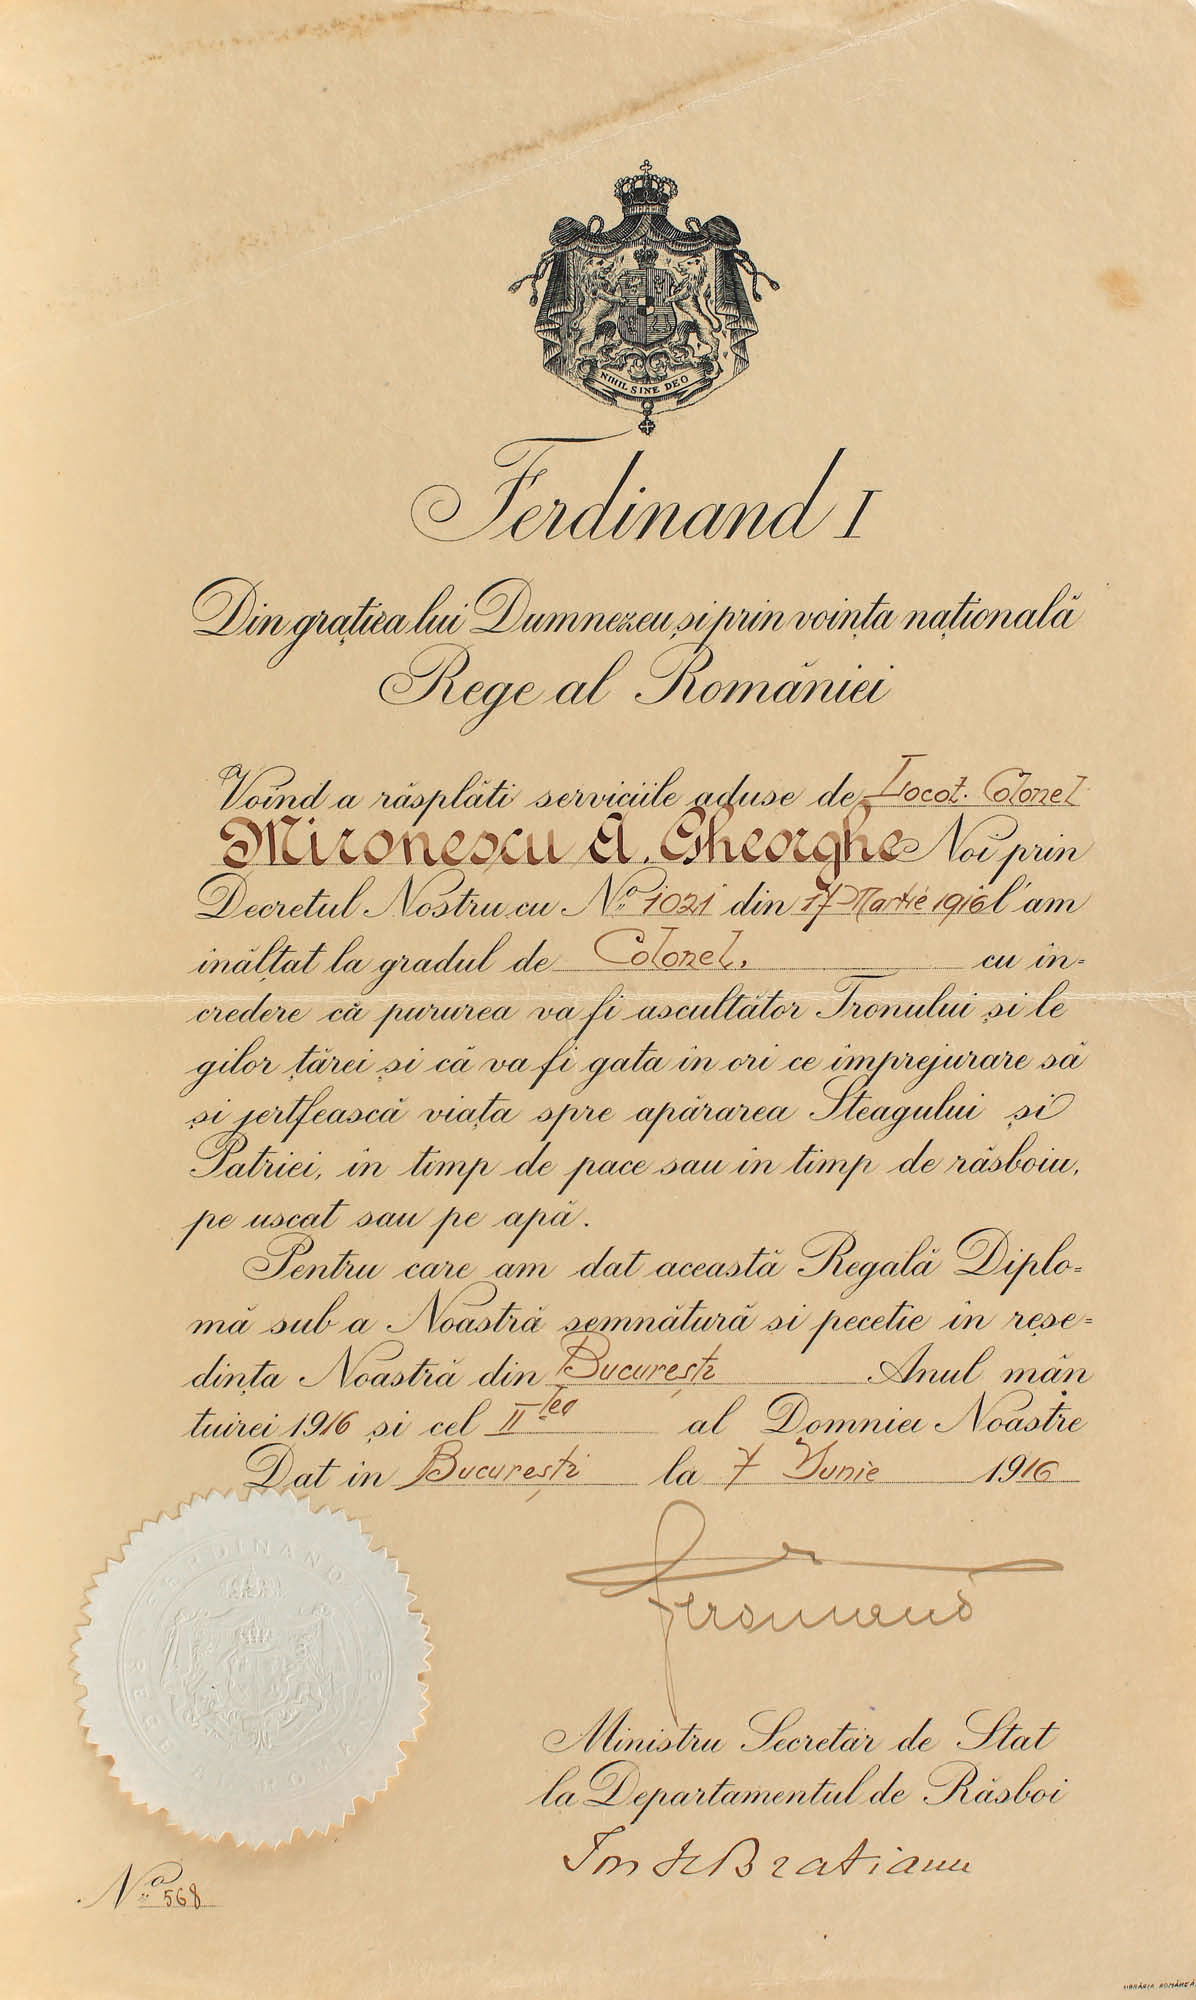 NIHIL SINE DEO
Ferdinand I
Din grația lui Dumnezeu și prin voința națională
Rege al României
Voind a răsplăti serviciile aduse de Locot. Colonel
Mironescu A. Gheorghe Noi prin
Decretul Nostru cu No. 1021 din 17 Martie 1916 l'am
inălțat la gradul de Colonel, cu in=
credere că pururea va fi ascultător Tronului și le
gilor țărei și că va fi gata in ori ce imprejurare să
și jertfească viața spre apărarea Steagului și
Patriei, in timp de pace sau in timp de răsboiu,
pe uscat sau pe apă.
Pentru care am dat această Regală Diplo=
mă sub a Noastră semnătură si pecetie in reșe=
dința Noastră din București Anul mân
tuirei 1916 și cel II lea al Domniei Noastre
Dat in București la 7 Iunie 1916
Ferdinand
Ministru Secretar de Stat
la Departamentul de Răsboi
Ion I C Bratianu
No. 568
FERDINAND I REGE AL ROMANIEI
LIBRĂRIA ROMÂNEA